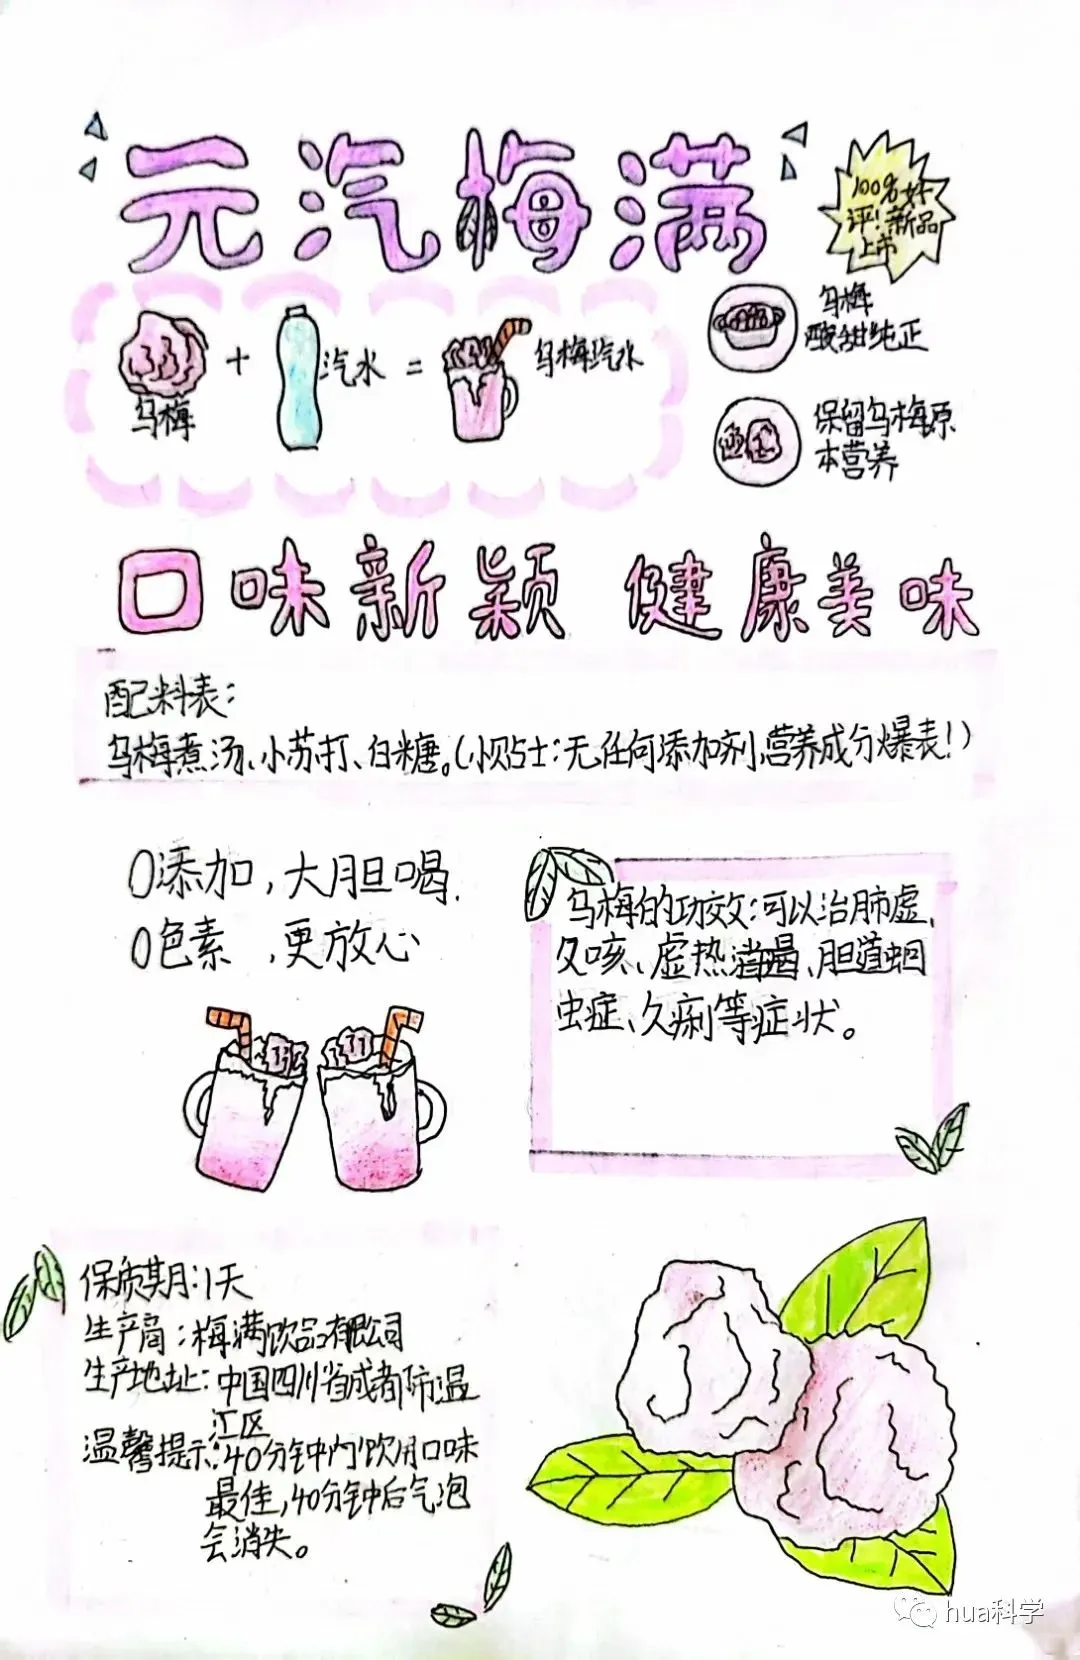 元汽梅满
100%好
评!新品
上市
乌梅
+
汽水
=
乌梅汽水
乌梅
酸甜纯正
保留乌梅原
本营养
口味新颖 健康美味
配料表:
乌梅煮汤、小苏打、白糖。(小贴士:无任何添加剂,营养成分爆表!)
0添加,大胆喝.
0色素,更放心
乌梅的功效:可以治肺虚、
久咳、虚热消渴、胆道蛔
虫症、久痢等症状。
保质期:1天
生产商:梅满饮品有限公司
生产地址:中国四川省成都市温
江区
温馨提示:40分钟内饮用口味
最佳,40分钟后气泡
会消失。
hua科学